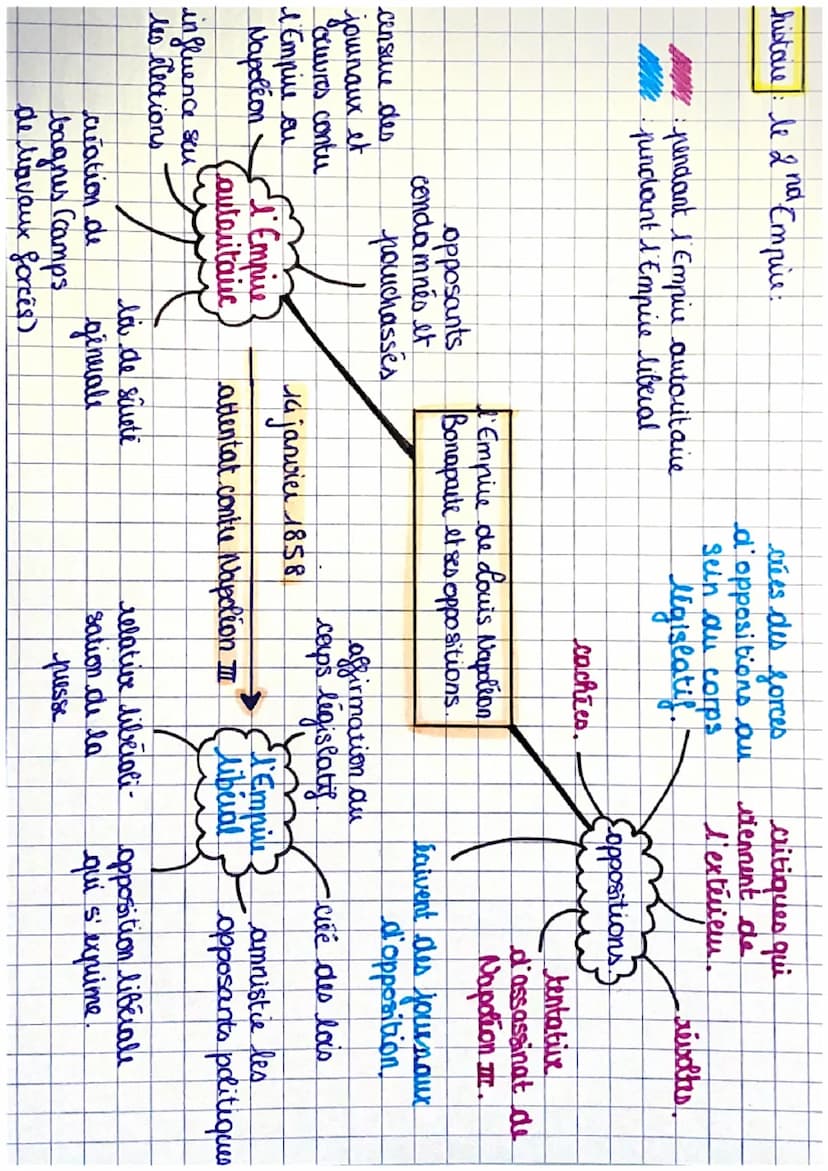 histoire : le 2nd Empire :
: pendant l'Empire autoritaire
: pendant l'Empire libéral
l'Empire de Louis Napoléon
Bonaparte et ses oppositions.
opposants
condamnés et
pourchassés
censure des
journaux et
œuvres contre
l'Empire ou
Napoléon
influence sur
les élections
création de
bagnes (camps
de travaux forcés)
loi de sûreté
générale
l'Empire
autoritaire
14 janvier 1858
attentat contre Napoléon III
l'Empire
libéral
affirmation du
corps législatif.
créé des lois
amnistie les
opposants politiques
opposition libérale
qui s'exprime.
relative libérali-
sation de la
presse
oppositions
cachées.
crées des forces
d'oppositions au
sein du corps
législatif.
critiques qui
viennent de
l'extérieur.
révoltes.
tentative
d'assassinat de
Napoléon III.
écrivent des journaux
d'opposition.